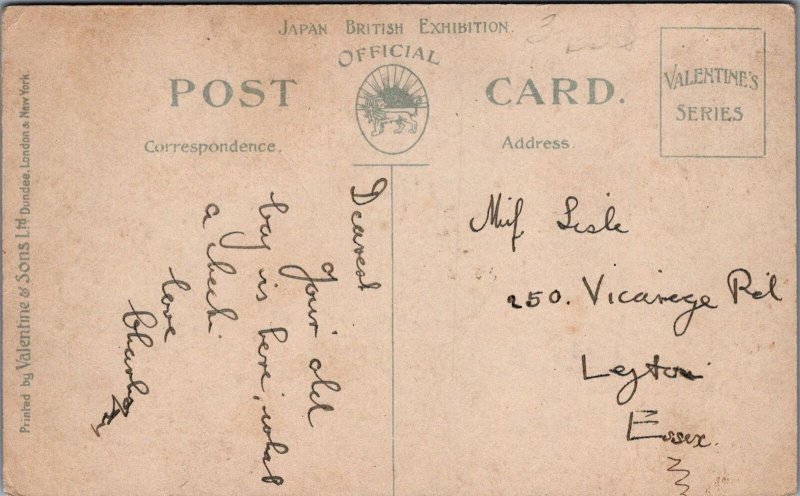 JAPAN BRITISH EXHIBITION.
OFFICIAL
POST CARD.
VALENTINE'S
SERIES
Correspondence.
Address.
Printed by Valentine & Sons Ltd Dundee, London & New York.
Dearest
your old
bay is here, what
a
love
Charles
Miſs Lisle
250. Vicarege Rd
Leyton
Essex.